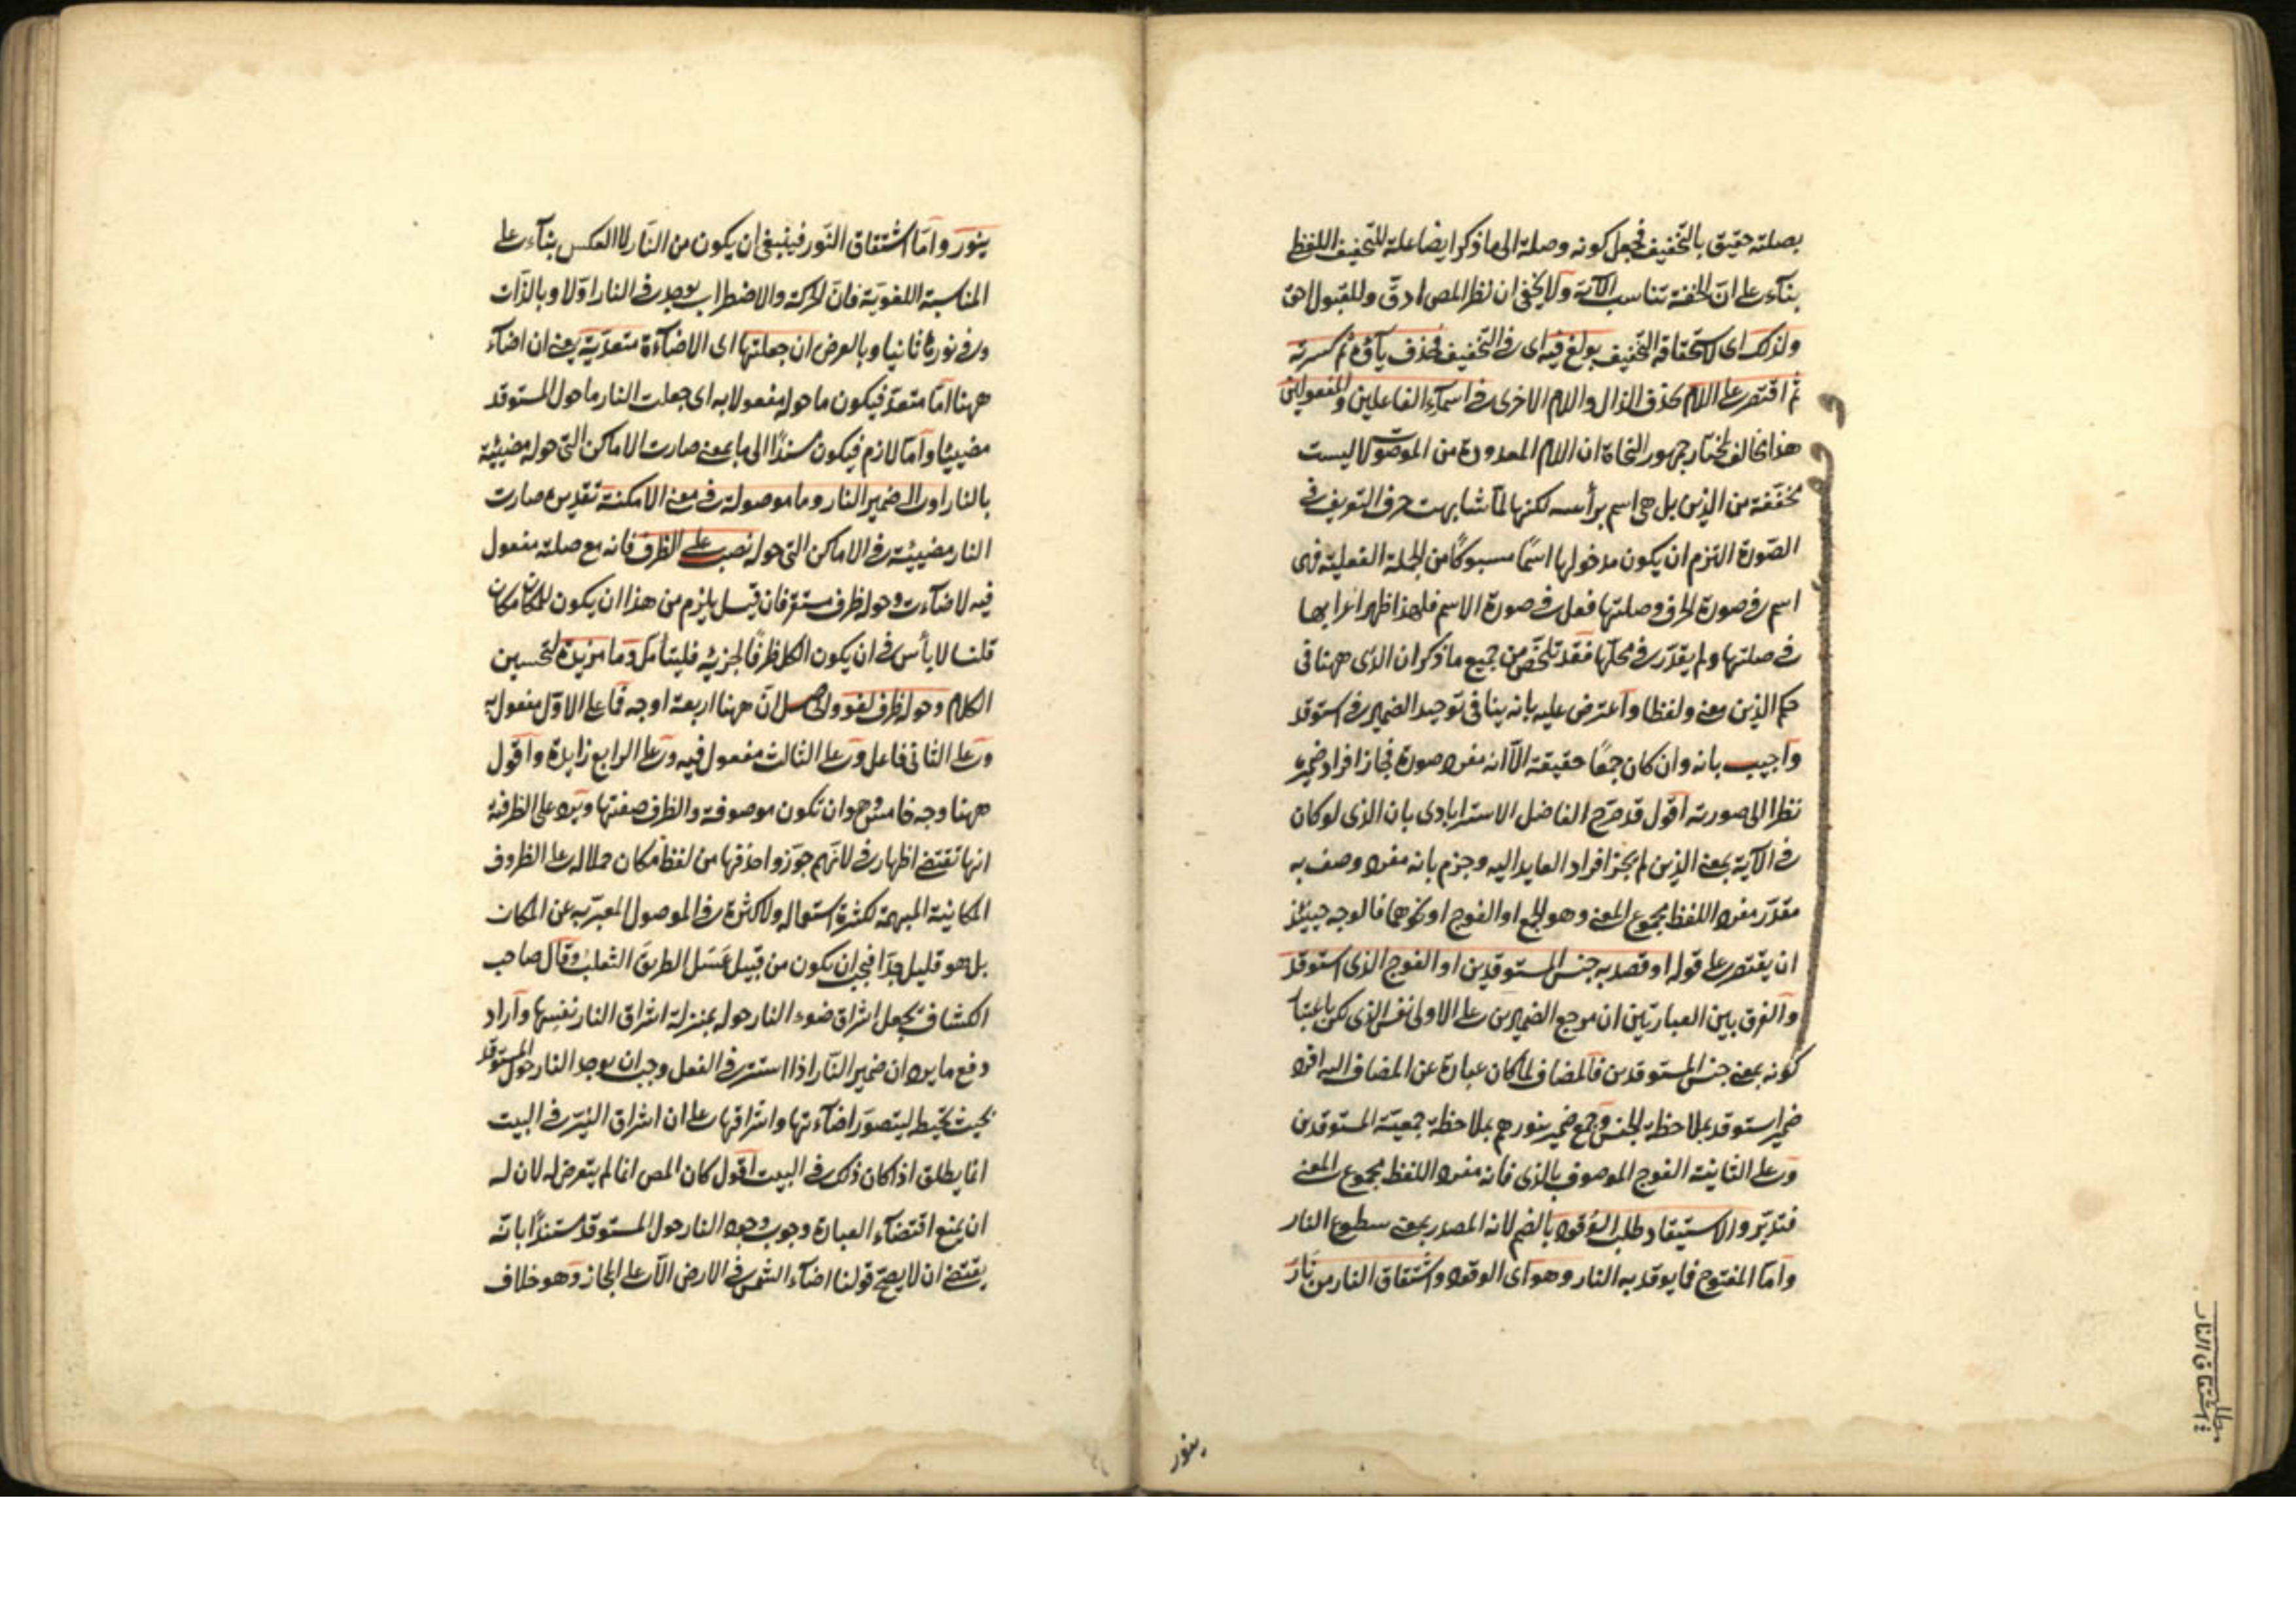 بصلته حقيق بالتخفيف فجعل كونه وصلة الى ما ذكر ايضا علة للتخفيف اللفظ
بناء على ان الخفة تناسب الآية ولا يخفى ان نظر المص ادق وللقبول احق
ولذلك اى لاستحقاقه التخفيف بولغ فيه اى فى التخفيف فحذف ياؤه ثم كسرته
ثم اقتصر على اللام بحذف الذال واللام الاخرى فى اسماء الفاعلين والمفعولين
هذا مخالف لمختار جمهور النحاة ان اللام المعدودة من الموصولات ليست
مخففة من الذين بل هى اسم برأسه لكنها لما شابهت حرف التعريف فى
الصورة التزم ان يكون مدخولها اسمًا مسبوكًا من الجملة الفعلية فهى
اسم فى صورة الحرف وصلتها فعل فى صورة الاسم فلهذا ظهر اعرابها
فى صلتها ولم يقدر فى محلها فقد تلخص من جميع ما ذكر ان الذى ههنا فى
حكم الذين معنى ولفظا واعترض عليه بانه ينافى توحيد الضمير فى استوقد
واجيب بانه وان كان جمعًا حقيقة الا انه مفرد صورة فجاز افراد ضميره
نظرا الى صورته اقول قد صرح الفاضل الاسترابادى بان الذى لو كان
فى الآية بمعنى الذين لم يجز افراد العايد اليه وجزم بانه مفرد وصف به
مقدر مفرد اللفظ مجموع المعنى وهو الجمع او الفوج او نحوهما فالوجه حينئذ
ان يقتصر على قوله او قصد به جنس المستوقدين او الفوج الذى استوقد
والفرق بين العبارتين ان مرجع الضميرين على الاولى نفس الذى لكن باعتبار
كونه بمعنى جنس المستوقدين فالمضاف لما كان عبارة عن المضاف اليه افرد
ضمير استوقد بملاحظة الجنس وجمع ضمير بنورهم بملاحظة جمعية المستوقدين
وعلى الثانية الفوج الموصوف بالذى فانه مفرد اللفظ مجموع المعنى
فتدبر والاستيقاد طلب الوُقود بالضم لانه المصدر بمعنى سطوع النار
واما المفتوح فما يوقد به النار وهو اى الوقود واشتقاق النار من نَارَ
مطلب
اشتقاق النار
ينور
ينور واما اشتقاق النور فينبغى ان يكون من النار لا العكس بناء على
المناسبة اللغوية فان الحركة والاضطراب يوجد فى النار اولا وبالذات
وفى نورها ثانيا وبالعرض ان جعلتها اى الاضاءة متعدية يعنى ان اضاء
ههنا اما متعد فيكون ما حوله مفعولا به اى جعلت النار ما حول المستوقد
مضيئا واما لازم فيكون مسندًا الى ما بمعنى صارت الاماكن التى حوله مضيئة
بالنار او الى ضمير النار وما موصولة فى معنى الامكنة تقديره صارت
النار مضيئة فى الاماكن التى حوله نصب على الظرف فانه مع صلته مفعول
فيه لاضاءت وحوله ظرف مستقر فان قيل يلزم من هذا ان يكون للمكان مكان
قلنا لا بأس فى ان يكون الكل ظرفًا لجزئه فليتأمل وما مزيدة لتحسين
الكلام وحوله ظرف لغو والحاصل ان ههنا اربعة اوجه فما على الاول مفعول به
وعلى الثانى فاعل وعلى الثالث مفعول فيه وعلى الرابع زايدة واقول
ههنا وجه خامس وهو ان تكون موصوفة والظرف صفتها ويرد على الظرفية
انها تقتضى اظهار فى لانهم جوزوا حذفها من لفظ مكان حملا له على الظروف
المكانية المبهمة لكثرة استعماله ولا كثرة فى الموصول المعبر به عن المكان
بل هو قليل جدا فيجب ان يكون من قبيل عَسَل الطريقَ الثعلبُ وقال صاحب
الكشاف بجعل اشراق ضوء النار حوله بمنزلة اشراق النار نفسها واراد
دفع ما يرد ان ضمير النار اذا استتر فى الفعل وجب ان يوجد النار حول المستوقد
بحيث يحيط ليتصور اضاءتها واشراقها على ان اشراق النير فى البيت
انما يطلق اذا كان ذلك فى البيت اقول كان المص انما لم يتعرض له لان له
ان يمنع اقتضاء العبارة وجوب وجود النار حول المستوقد مستندًا بانه
يقتضى ان لا يصح قولنا اضاء الشمس فى الارض الا على المجاز وهو خلاف